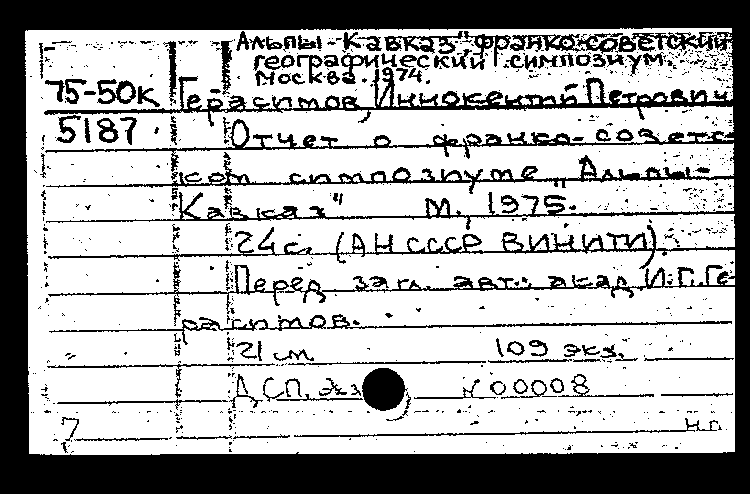 Альпы-Кавказ", франко-советский
географический симпозиум.
Москва. 1974.
75-50к Герасимов, Иннокентий Петрович
5187. Отчет о франко-советс-
ком симпозиуме „Альпы-
Кавказ" М., 1975.
24 с. (АН СССР ВИНИТИ).
Перед загл. авт.: акад. И.П. Ге-
расимов.
21 см. 109 экз.
ДСП. экз N 00008
7 Н.П.